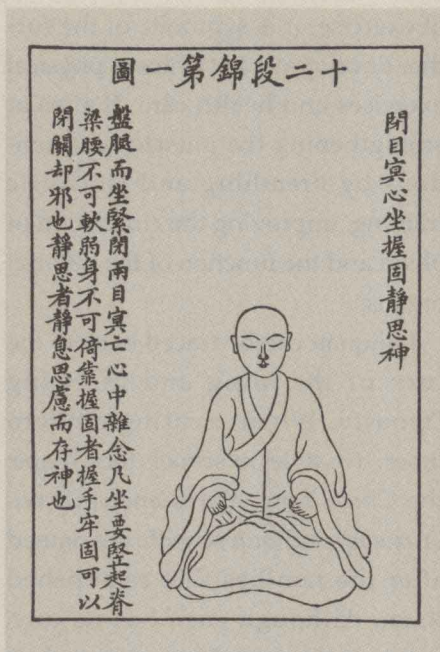 十二段錦第一圖
閉目㝠心坐握固靜思神
盤腿而坐緊閉兩目㝠亡心中雜念凡坐要竪起脊
梁腰不可軟弱身不可倚靠握固者握手牢固可以
閉關却邪也靜思者靜息思慮而存神也